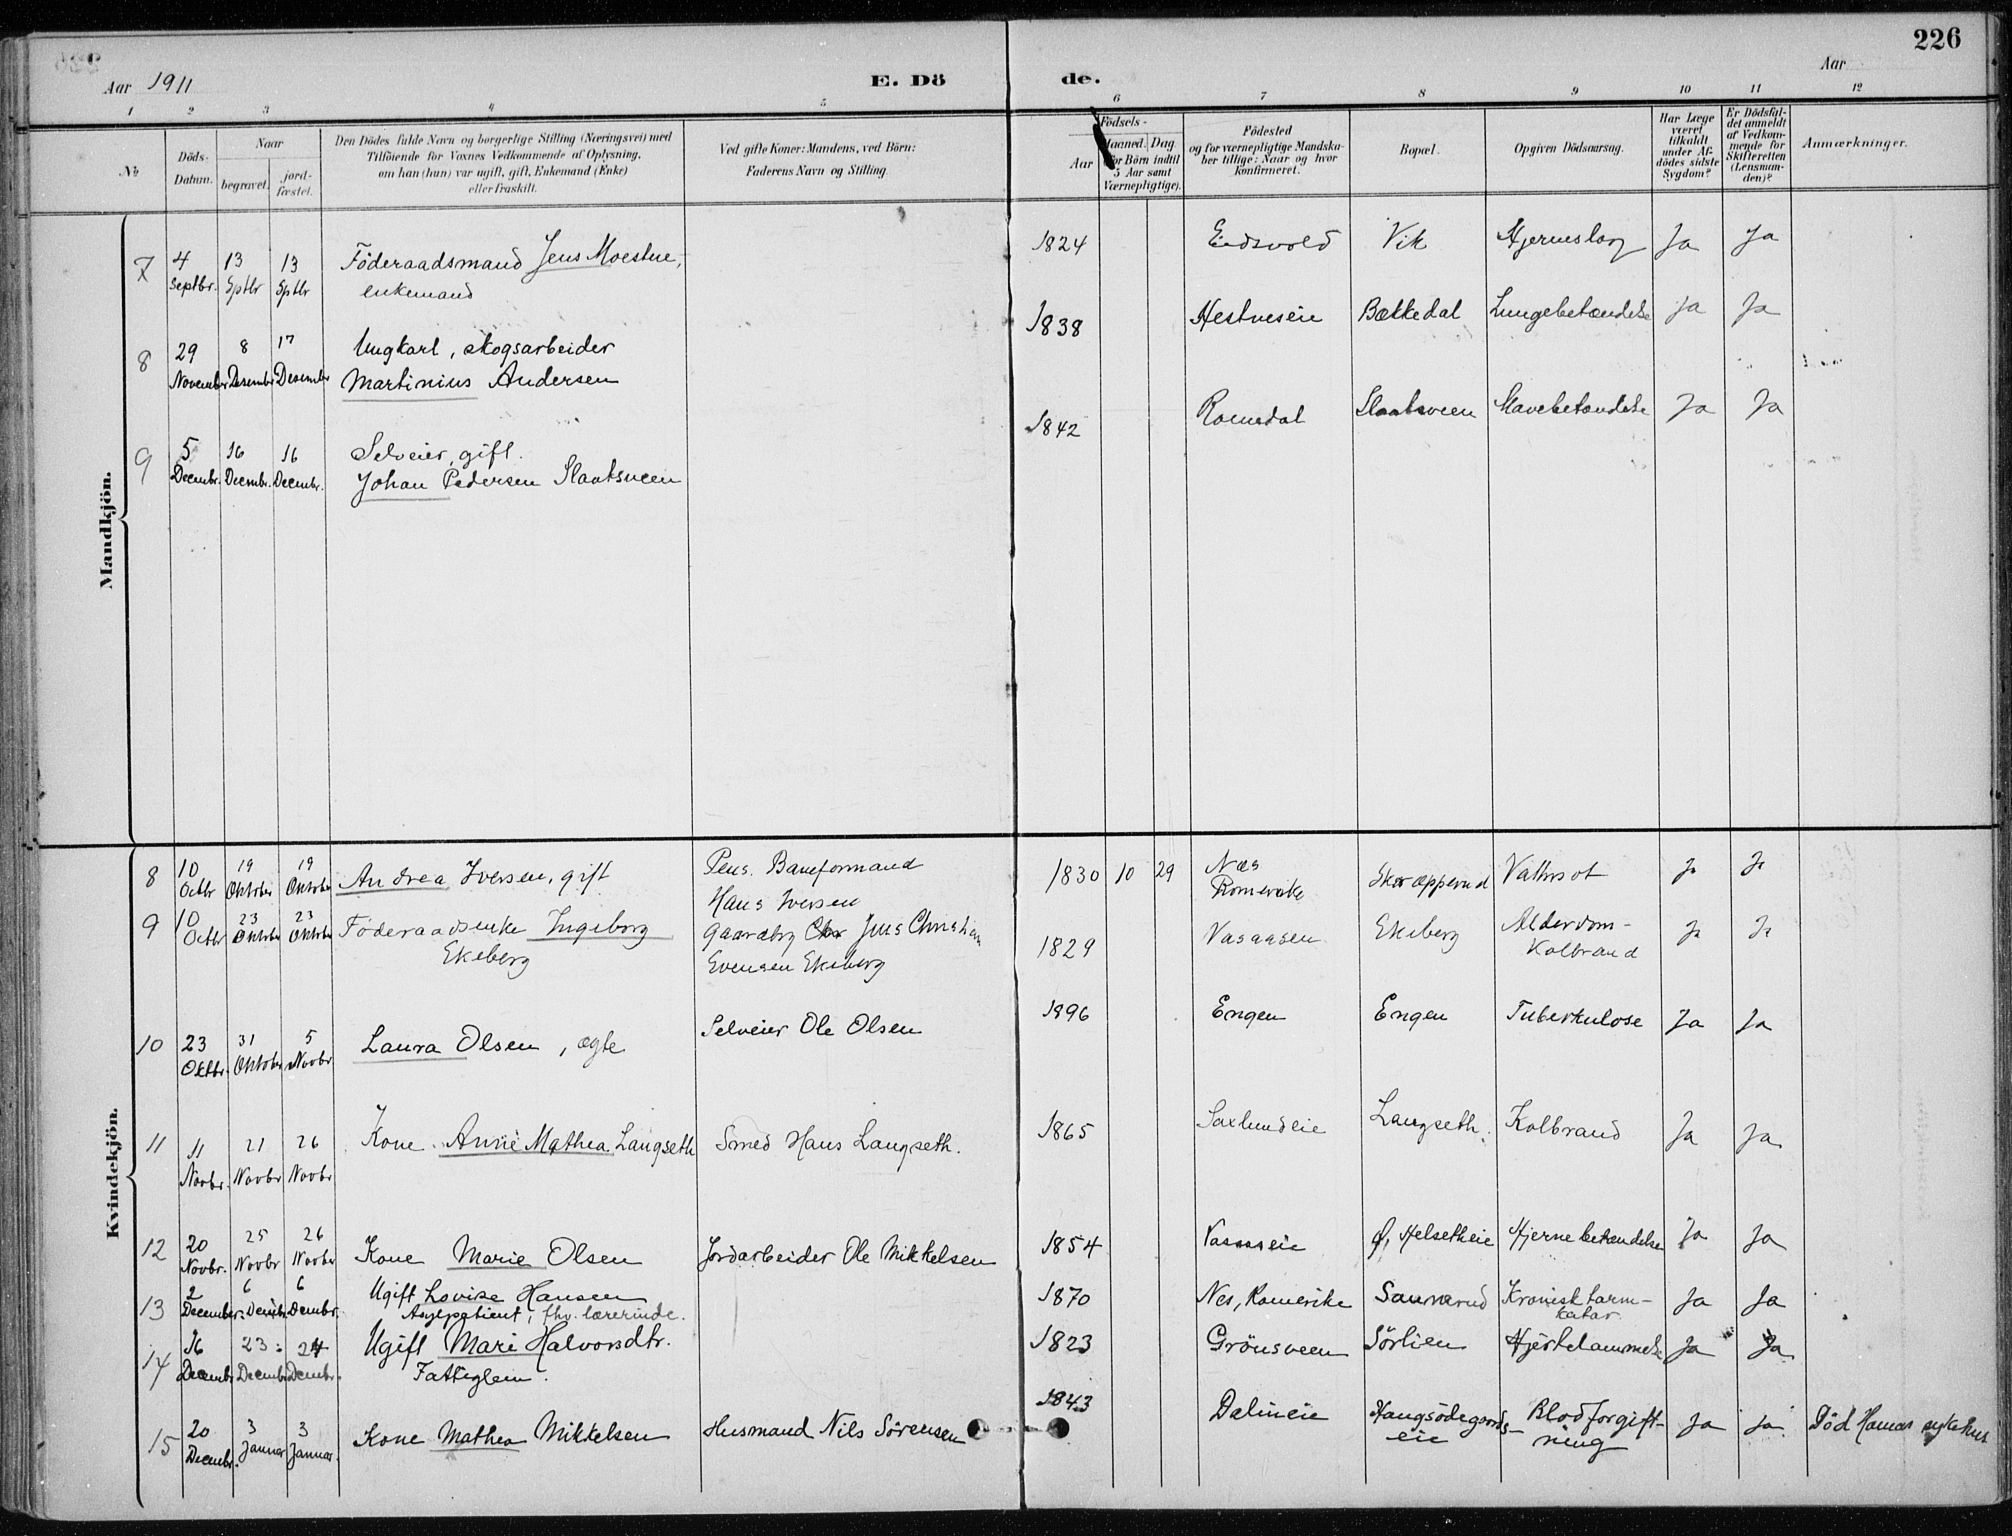 226
Aar 1911
E. Dö
de.
Aar
1 2 3 4 5 6 7 8 9 10 11 12
№
Döds-
Datum.
Naar
begravet.
jord-
fæstet.
Den Dödes fulde Navn og borgerlige Stilling (Næringsvei) med
Tilföiende for Voxnes Vedkommende af Oplysning,
om han (hun) var ugift, gift, Enkemand (Enke)
eller fraskilt.
Ved gifte Koner: Mandens, ved Börn:
Faderens Navn og Stilling.
Födsels-
Aar
Maaned. Dag
for Börn indtil
5 Aar samt
Værnepligtige).
Födested
og for værnepligtige Mandska-
ber tillige: Naar og hvor
konfirmeret.
Bopæl.
Opgiven Dödsaarsag.
Har Læge
været
tilkaldt
under Af-
dödes sidste
Sygdom?
Er Dödsfal-
det anmeldt
af Vedkom-
mende for
Skifteretten
(Lensman-
den)?
Anmærkninger.
Mandkjön.
7 4 Septbr. 13 Sptbr 13 Sptbr Föderaadsmand Jens Moestue, enkemand 1824 Eidsvold Vik Hjerneslag Ja Ja
8 29 November 8 Desember 17 Desember Ungkarl, skogsarbeider Martinius Andersen 1838 Hestneseie Bækkedal Lungebetændelse Ja Ja
9 5 Decembr. 16 Decmbr. 16 Decembr. Selveier, gift. Johan Pedersen Slaatsveen 1842 Romedal Slaatsveen Mavebetændelse Ja Ja
Kvindekjön.
8 10 Octbr 19 Oktober 19 Oktober Andrea Iversen, gift Pens. Baneformand Hans Iversen 1830 10 29 Næs Romerike Skræpperud Vatersot Ja Ja
9 10 Octbr 23 Oktober 23 Oktober Föderaadsenke Ingeborg Ekeberg Gaardbr Jens Christian Evensen Ekeberg 1829 Vasaasen Ekeberg Alderdom- Kolbrand Ja Ja
10 23 Oktbr. 31 Oktober 5 Novbr. Laura Olsen, ægte Selveier Ole Olsen 1896 Engen Engen Tuberkulose Ja Ja
11 11 Novbr. 21 Novbr 26 Novbr Kone Anne Mathea Langseth Smed Hans Langseth. 1865 Saxlundeie Langseth. Kolbrand Ja Ja
12 20 Novbr. 25 Novbr 26 Novbr Kone Marie Olsen Jordarbeider Ole Mikkelsen 1854 Vasaaseie Ø. Helsetheie Hjernebetændelse Ja Ja
13 2 December. 6 Dembr. 6 Dembr. Ugift Lovise Hansen Asylpatient, fhv. lærerinde. 1870 Nes, Romerike Saunerud Kronisk tarm- katar Ja Ja
14 16 Decembr. 23 Decmbr. 24 Dcmbr. Ugift Mari Halvorsdtr. Fattiglem. 1823 Grönsveen Sörlien Hjertelammelse Ja Ja
15 20 Decembr. 3 Januar 3 Januar. Kone Mathea Mikkelsen Husmand Nils Sörensen 1843 Dalineie Haugsödegaards- eie Blodforgift- ning Ja Ja Död Hamar sykehus